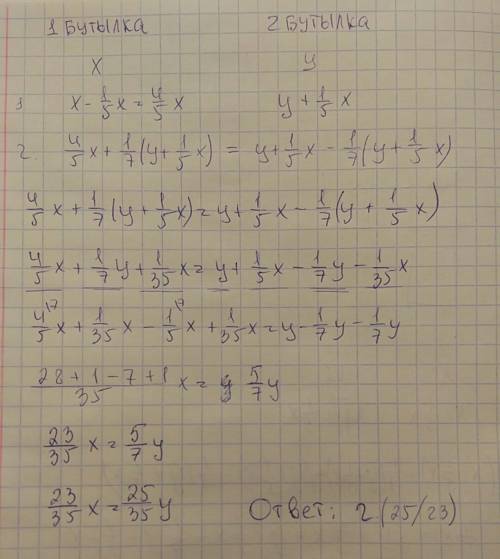 1 БУТЫЛКА 2 БУТЫЛКА
x y
1. x - 1/5 x = 4/5 x y + 1/5 x
2. 4/5 x + 1/7 (y + 1/5 x) = y + 1/5 x - 1/7 (y + 1/5 x)
4/5 x + 1/7 (y + 1/5 x) = y + 1/5 x - 1/7 (y + 1/5 x)
4/5 x + 1/7 y + 1/35 x = y + 1/5 x - 1/7 y - 1/35 x
4/5 \7 x + 1/35 x - 1/5 \7 x + 1/35 x = y - 1/7 y - 1/7 y
28 + 1 - 7 + 1/35 x = 5/7 y
23/35 x = 5/7 y
23/35 x = 25/35 y Ответ: 2 (25/23)